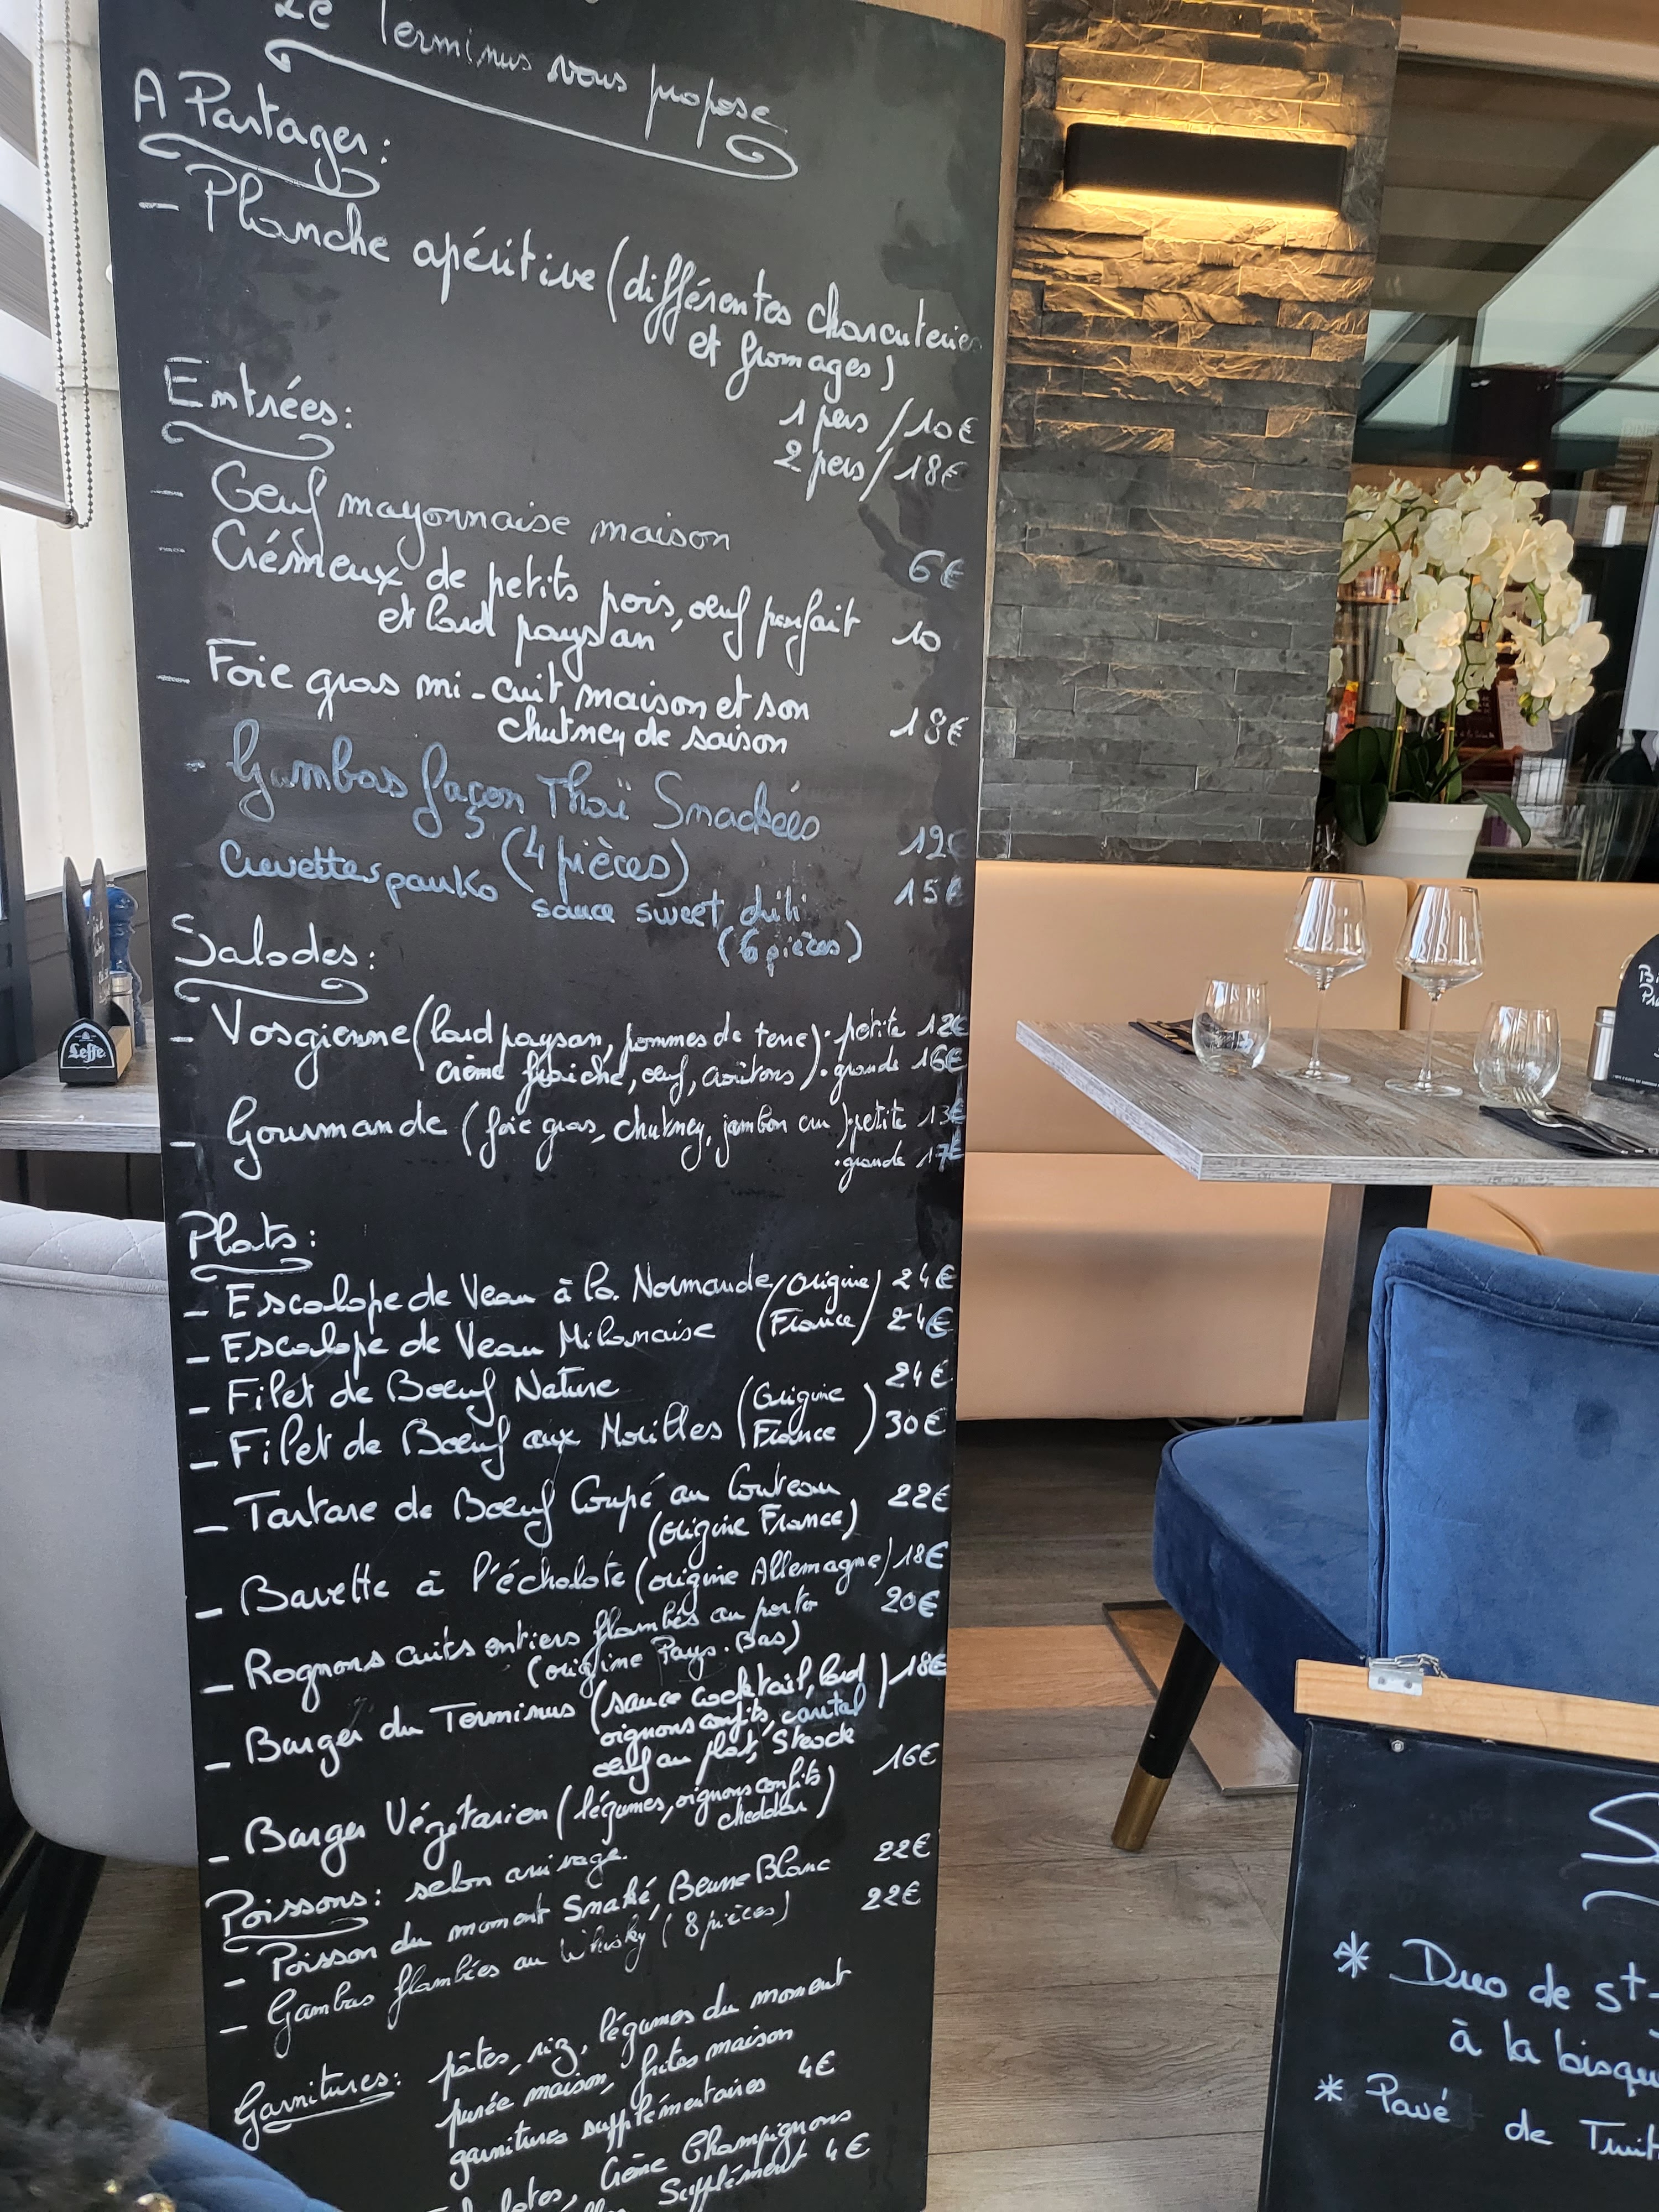 Le Terminus vous propose
A Partager:
- Planche apéritive (différentes charcuteries
et fromages)
1 pers / 10€
2 pers / 18€
Entrées:
- Oeuf mayonnaise maison 6€
- Crémeux de petits pois, oeuf parfait 10
et lard paysan
- Foie gras mi-cuit maison et son 18€
chutney de saison
- Gambas façon Thaï Snackées
(4 pièces) 12€
Crevettes panko sauce sweet chili 15€
(6 pièces)
Salades:
- Vosgienne (lard paysan, pommes de terre) . petite 12€
crème fraiche, oeuf, croûtons) . grande 16€
- Gourmande (foie gras, chutney, jambon cru) . petite 13€
. grande 17€
Plats:
- Escalope de Veau à la Normande (Origine) 24€
- Escalope de Veau Milanaise (France) 24€
- Filet de Boeuf Nature 24€
- Filet de Boeuf aux Morilles (Origine France) 30€
- Tartare de Boeuf Coupé au Couteau 22€
(origine France)
- Bavette à l'échalote (origine Allemagne) 18€
- Rognons cuits entiers flambés au porto 20€
(origine Pays-Bas)
- Burger du Terminus (sauce cocktail, lard) 18€
oignons confits, cantal
oeuf au plat, Steack
- Burger Végétarien (légumes, oignons confits 16€
cheddar)
Poissons: selon arrivage.
- Poisson du moment Snaké, Beurre Blanc 22€
- Gambas flambées au Whisky (8 pièces) 22€
Garnitures: pâtes, riz, légumes du moment
purée maison, frites maison
garnitures supplémentaires 4€
Crème Champignons
Supplément 4€
Leffe
* Duo de st-
à la bisqu
* Pavé de Truit